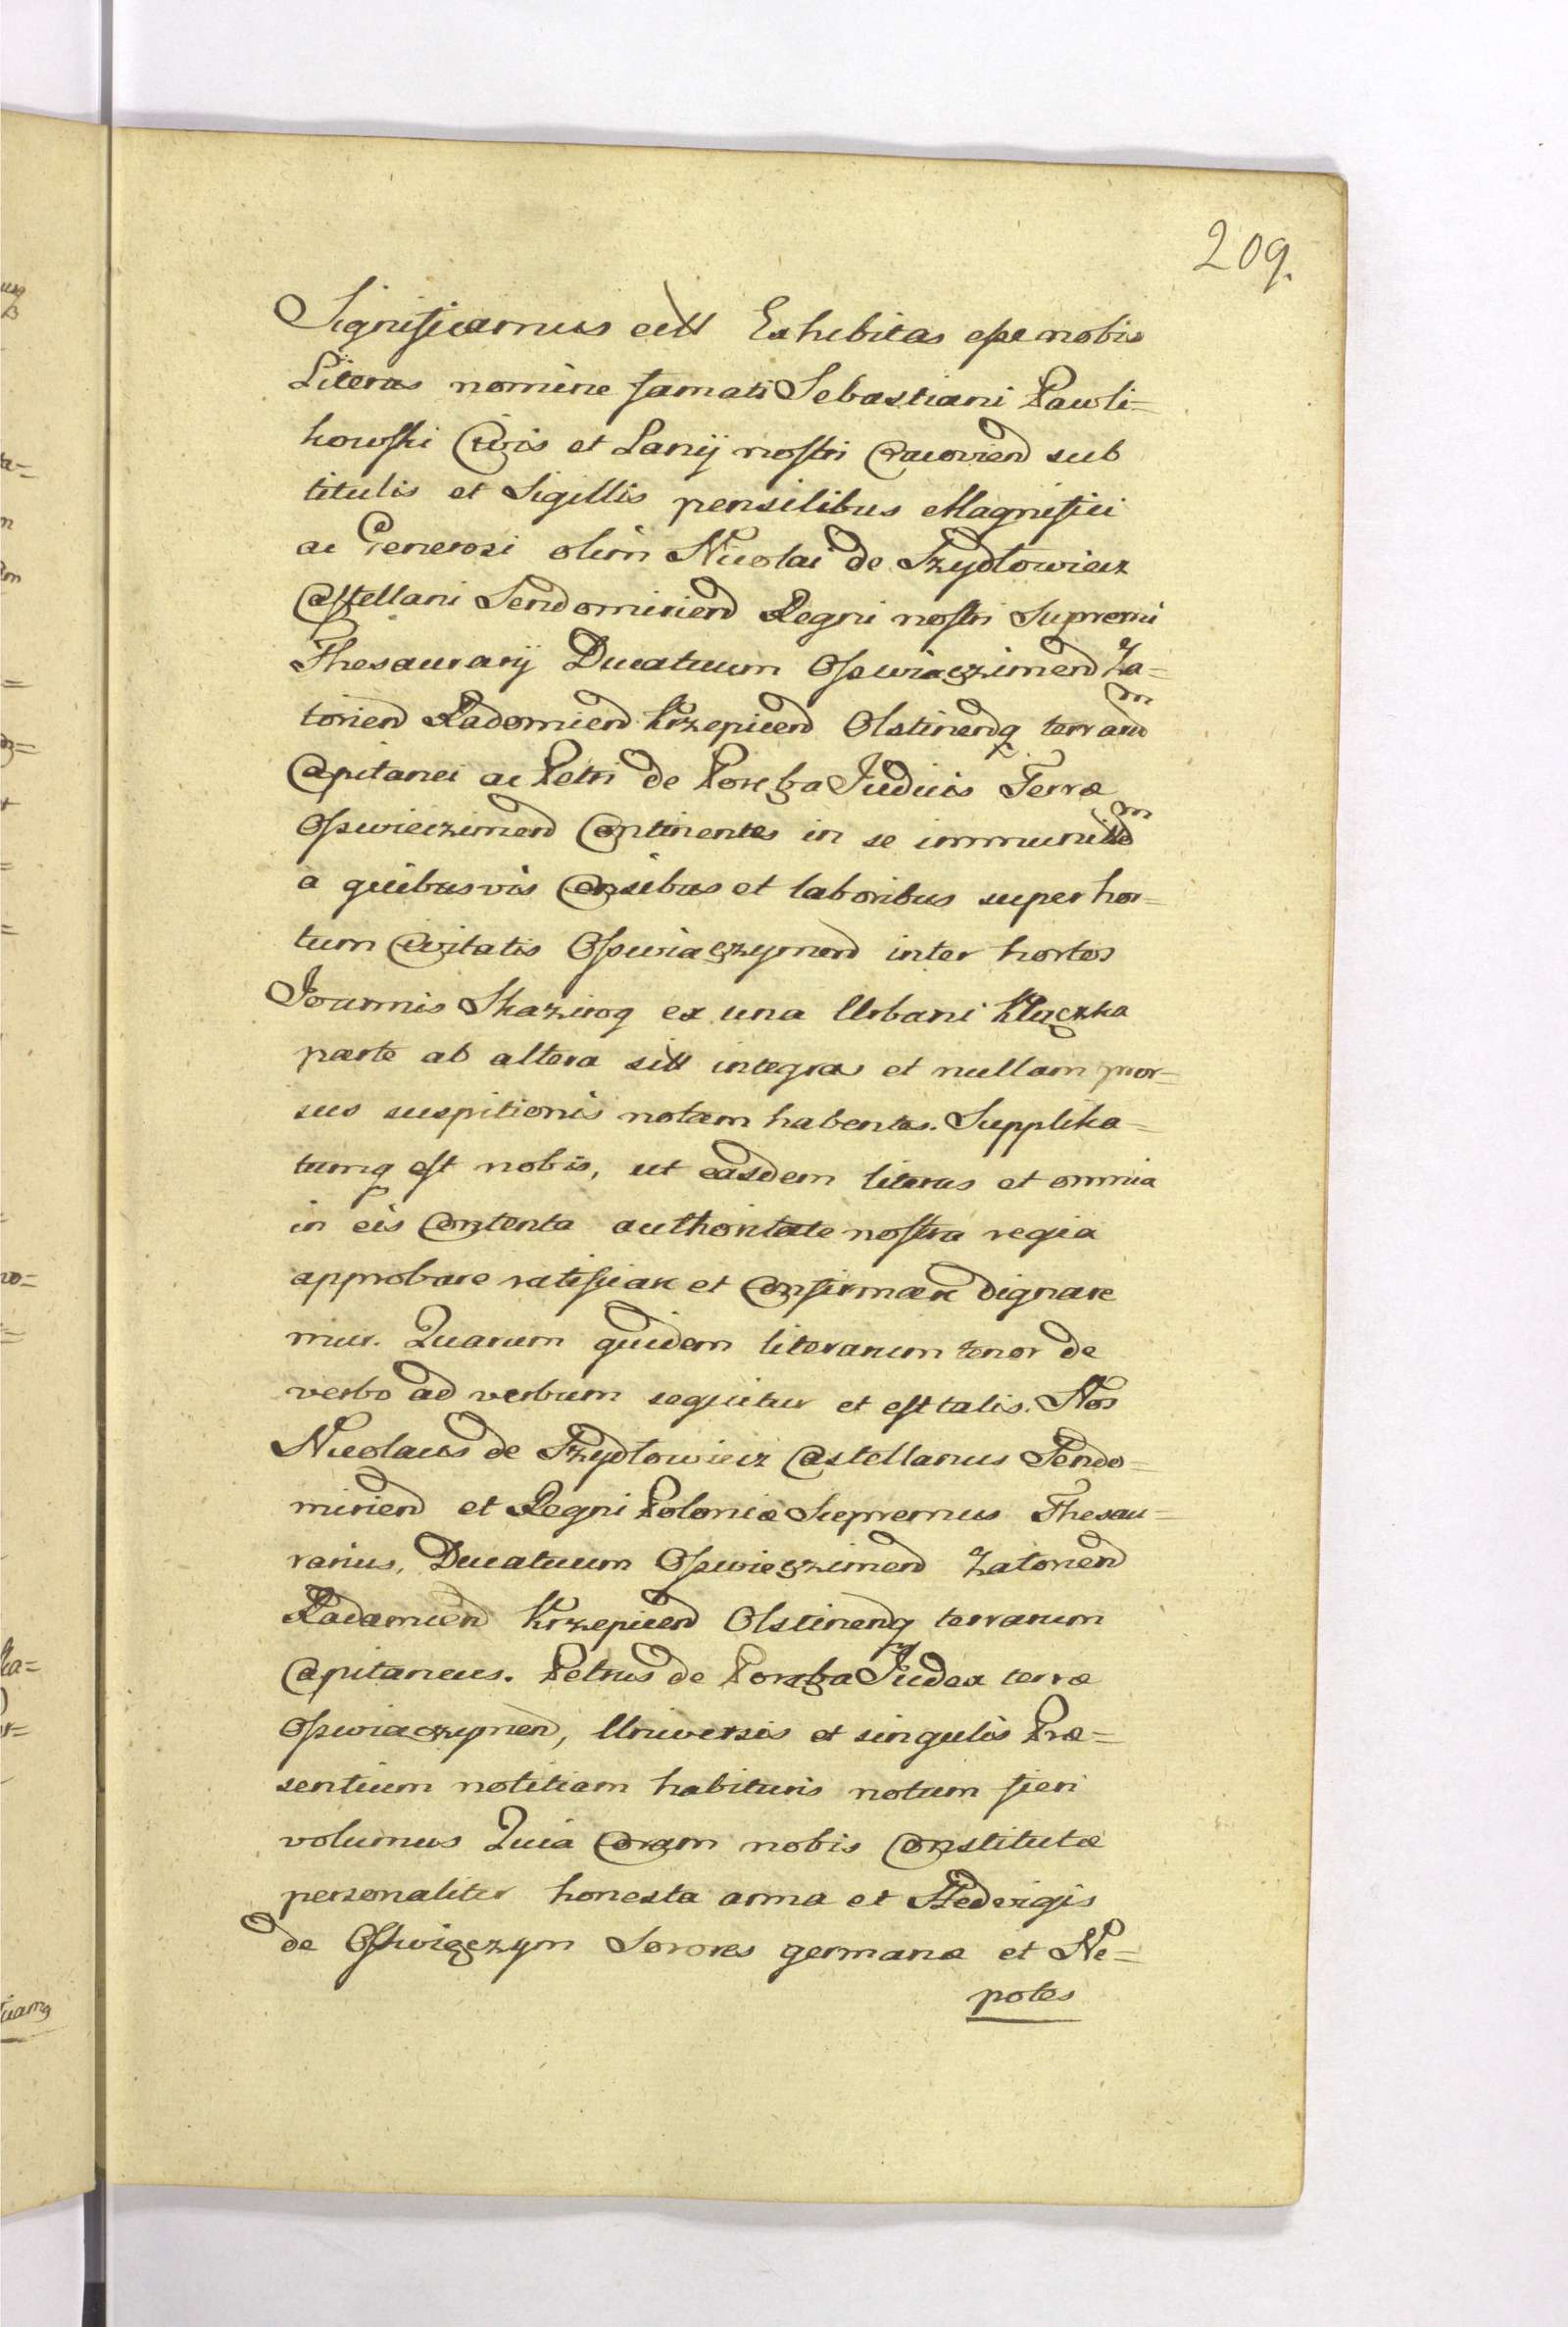 209.
Significamus ettt Exhibitas esse nobis
Literas nomine famati Sebastiani Pawli=
kowski Civis et Lanij nostri Cracovien sub
titulis et Sigillis pensilibus Magnifici
ac Generosi olim Nicolai de Szydlowiecz
Castellani Sendomirien Regni nostri Supremi
Thesaurarij Ducatuum Osswiaczimen Za=
torien Radomien Krzepicen Olstinenq terrarum
Capitanei ac Petri de Poreba Judicis Terræ
Osswieczimen Continentes in se immunittem
a quibusvis Censibus et laboribus super hor=
tum Civitatis Osswiaczymen inter hortos
Joannis Skazirog ex una Urbani Kluczka
parte ab altera sitt integras et nullam pror=
sus suspitionis notam habentes. Supplika=
tumq est nobis, ut easdem literas et omnia
in eis Contenta authoritate nostra regia
approbare ratificare et Confirmare dignare
mur. Quarum quidem literarum tenor de
verbo ad verbum sequitur et est talis. Nos
Nicolaus de Szydlowiecz Castellanus Sendo=
mirien et Regni Poloniæ Supremus Thesau=
rarius, Ducatuum Osswieczimen Zatorien
Radamien Krzepicen Olstinenq terrarum
Capitaneus. Petrus de Poreba Judex terræ
Osswiaczymen, Universis et singulis Præ=
sentium notitiam habituris notum fieri
volumus Quia Coram nobis Constitutæ
personaliter honesta anna et Hedvigis
de Osswigczym Sorores germanæ et Ne=
potes